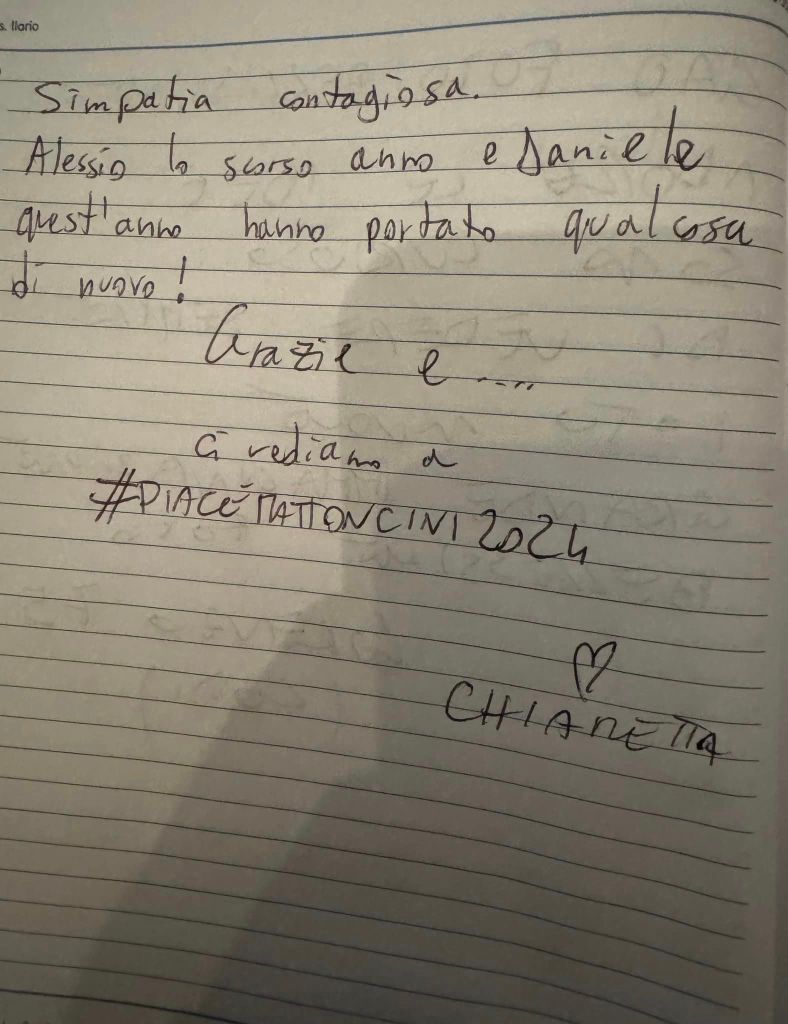 s. Ilario
Simpatia contagiosa.
Alessio lo scorso anno e Daniele
quest'anno hanno portato qualcosa
di nuovo!
Grazie e ....
ci vediamo a
#PIACEMATTONCINI2024
♡
CHIARETTA